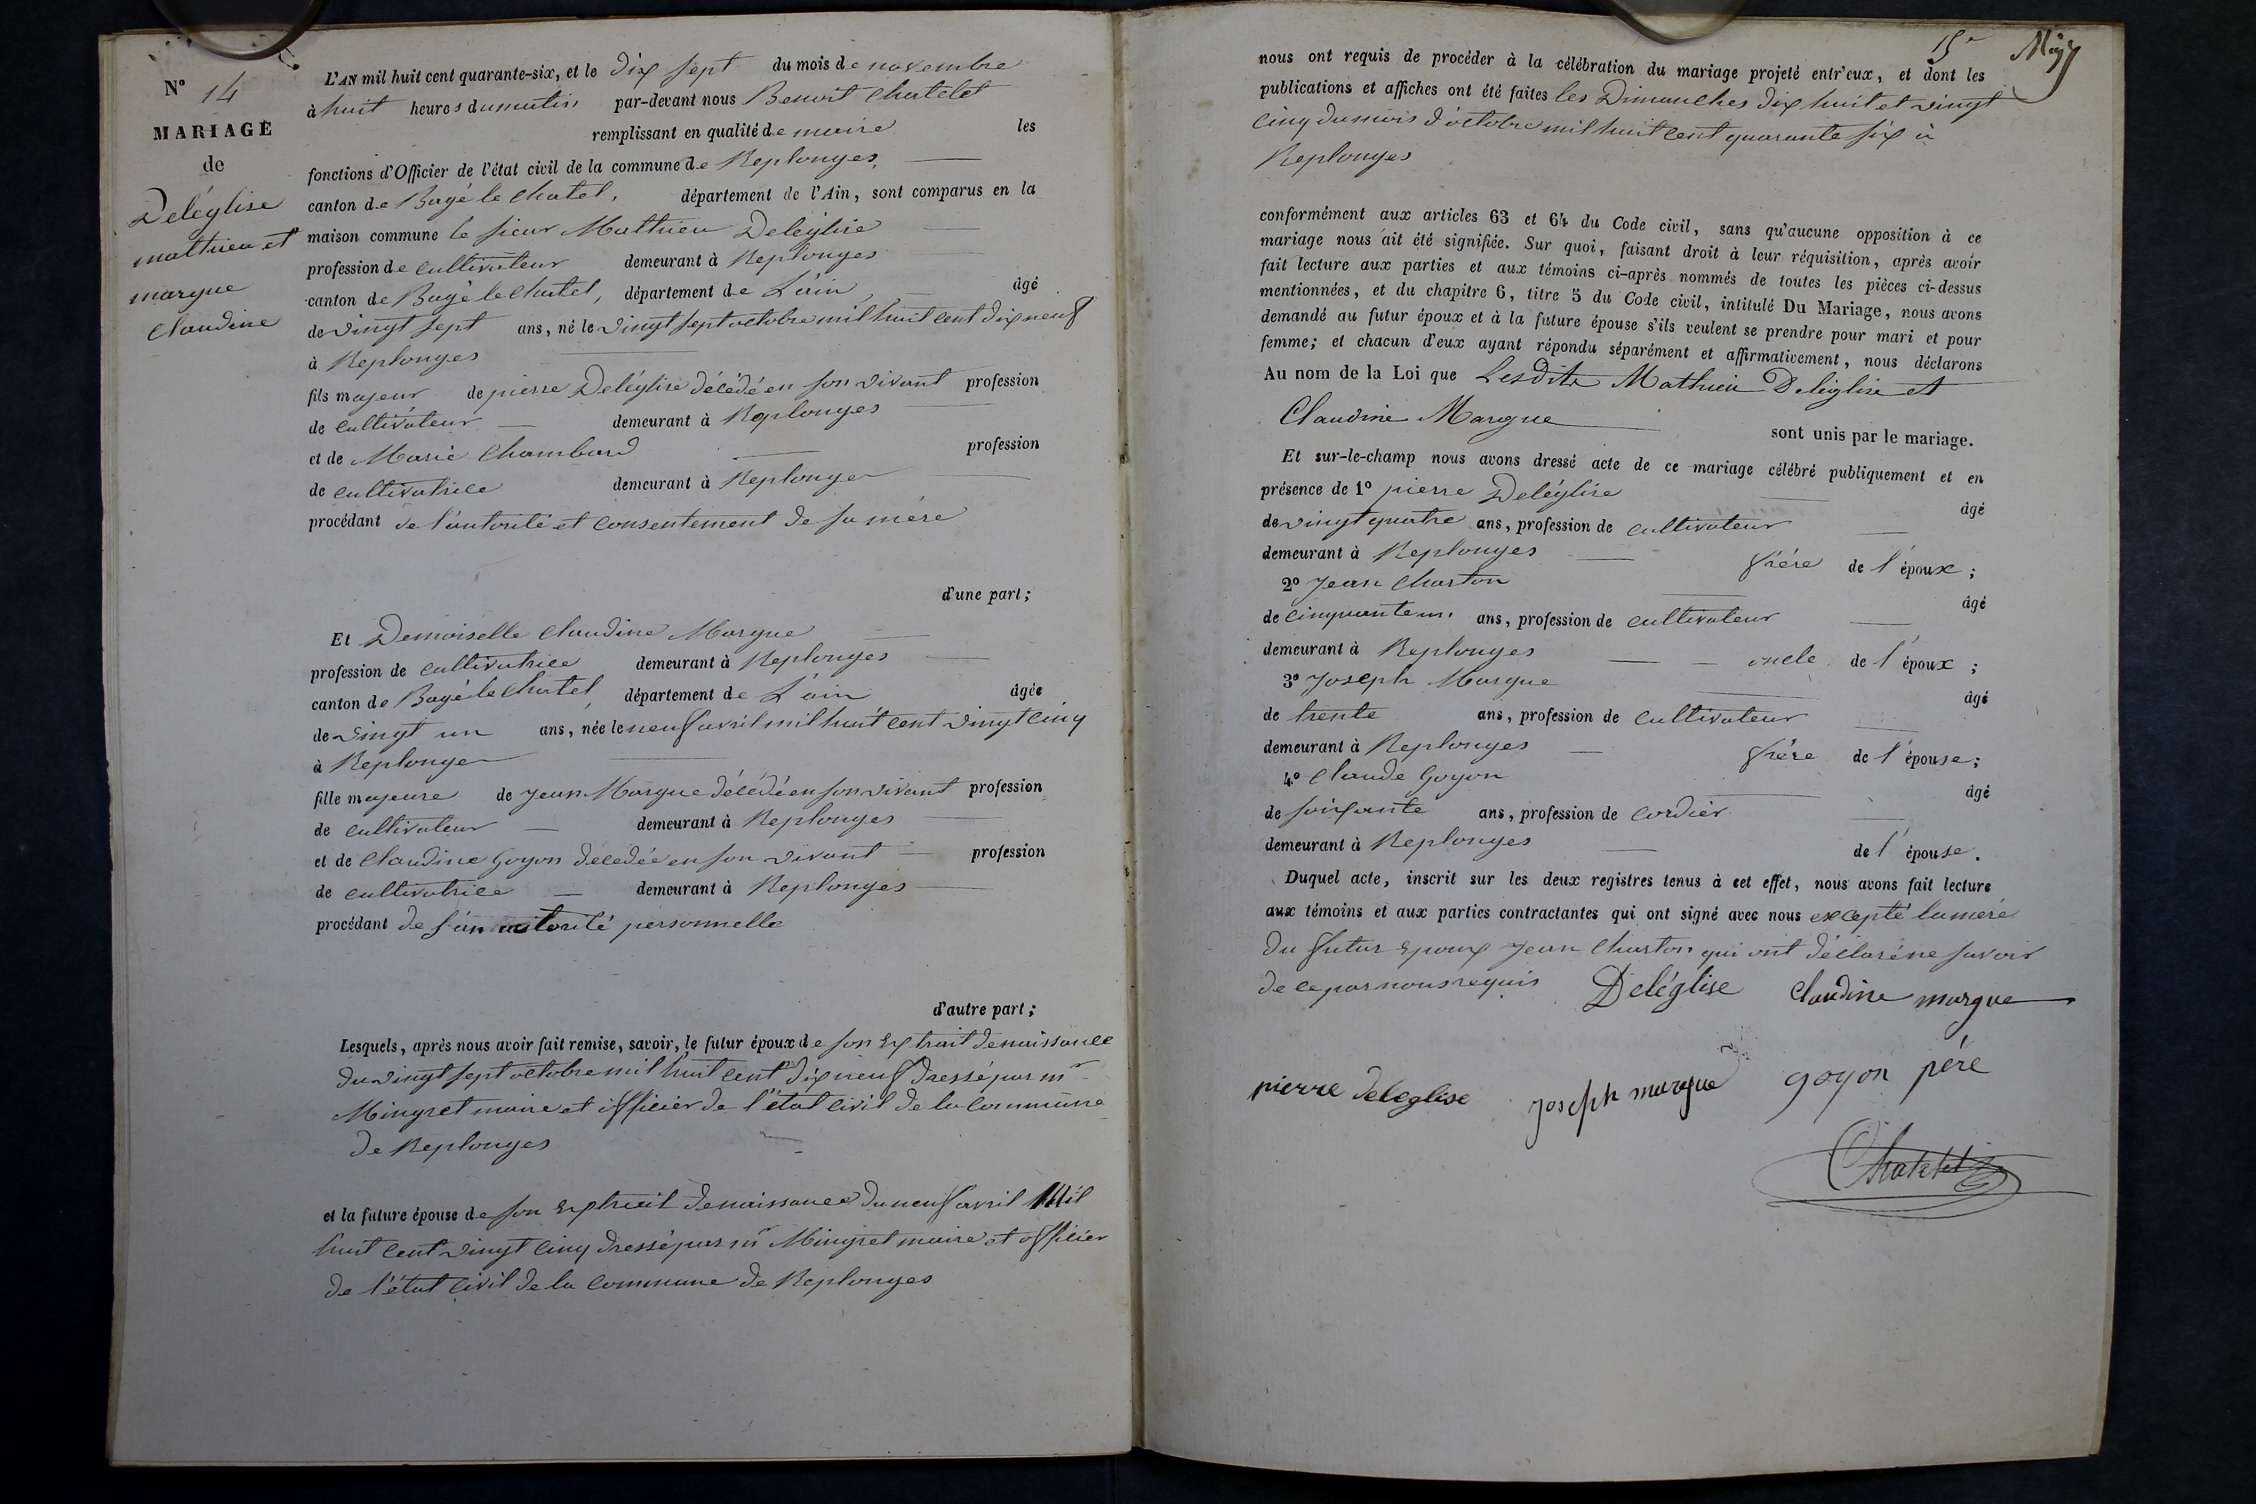 N° 14
MARIAGE
de
Deléglise
mathieu et
margue
claudine
L'AN mil huit cent quarante-six, et le dix sept du mois de novembre
à huit heures du matin par-devant nous Benoit Chatelet
remplissant en qualité de maire les
fonctions d'Officier de l'état civil de la commune de Replonges,
canton de Bagé le chatel, département de l'Ain, sont comparus en la
maison commune le sieur Mathieu Deléglise
profession de cultivateur demeurant à Replonges
canton de Bagé le chatel, département de L'ain âgé
de vingt sept ans, né le vingt sept octobre mil huit cent dix neuf
à Replonges
fils majeur de pierre Deléglise décédé en son vivant profession
de cultivateur demeurant à Replonges
et de Marie Chambard profession
de cultivatrice demeurant à Replonges
procédant de l'autorité et consentement de sa mére
d'une part;
Et Demoiselle claudine Margue
profession de cultivatrice demeurant à Replonges
canton de Bagé le Chatel, département de L'ain âgée
de vingt un ans, née le neuf avril mil huit cent vingt cinq
à Replonges
fille majeure de jean Margue décédé en son vivant profession
de cultivateur demeurant à Replonges
et de claudine Goyon décedée en son vivant profession
de cultivatrice demeurant à Replonges
procédant de son autorité personnelle
d'autre part;
Lesquels, après nous avoir fait remise, savoir, le futur époux de son Extrait de naissance
du vingt sept octobre mil huit cent dix neuf dressé par mr
Mingret maire et officier de l'état civil de la commune
de Replonges
et la future épouse de son Extrait de naissance du neuf avril Mil
huit cent vingt cinq dressé par mr Mingret maire et officier
de l'état civil de la commune de Replonges
15e
nous ont requis de procéder à la célébration du mariage projeté entr'eux, et dont les
publications et affiches ont été faites les Dimanches dix huit et vingt
cinq du mois d'octobre mil huit cent quarante six à
Replonges
conformément aux articles 63 et 64 du Code civil, sans qu'aucune opposition à ce
mariage nous ait été signifiée. Sur quoi, faisant droit à leur réquisition, après avoir
fait lecture aux parties et aux témoins ci-après nommés de toutes les pièces ci-dessus
mentionnées, et du chapitre 6, titre 5 du Code civil, intitulé Du Mariage, nous avons
demandé au futur époux et à la future épouse s'ils veulent se prendre pour mari et pour
femme; et chacun d'eux ayant répondu séparément et affirmativement, nous déclarons
Au nom de la Loi que Lesdits Mathieu Deléglise et
Claudine Margue sont unis par le mariage.
Et sur-le-champ nous avons dressé acte de ce mariage célébré publiquement et en
présence de 1° pierre Deléglise âgé
de vingt quatre ans, profession de cultivateur
demeurant à Replonges frére de l'époux;
2° jean Charton âgé
de cinquante un ans, profession de cultivateur
demeurant à Replonges oncle de l'époux;
3° joseph Margue âgé
de trente ans, profession de cultivateur
demeurant à Replonges frére de l'épouse;
4° claude Goyon âgé
de soixante ans, profession de cordier
demeurant à Replonges de l'épouse.
Duquel acte, inscrit sur les deux registres tenus à cet effet, nous avons fait lecture
aux témoins et aux parties contractantes qui ont signé avec nous excepté la mére
du futur Epoux jean Charton qui ont déclaré ne savoir
de ce par nous requis Deléglise Claudine margue
pierre deleglise joseph margue goyon pére
Chatelet